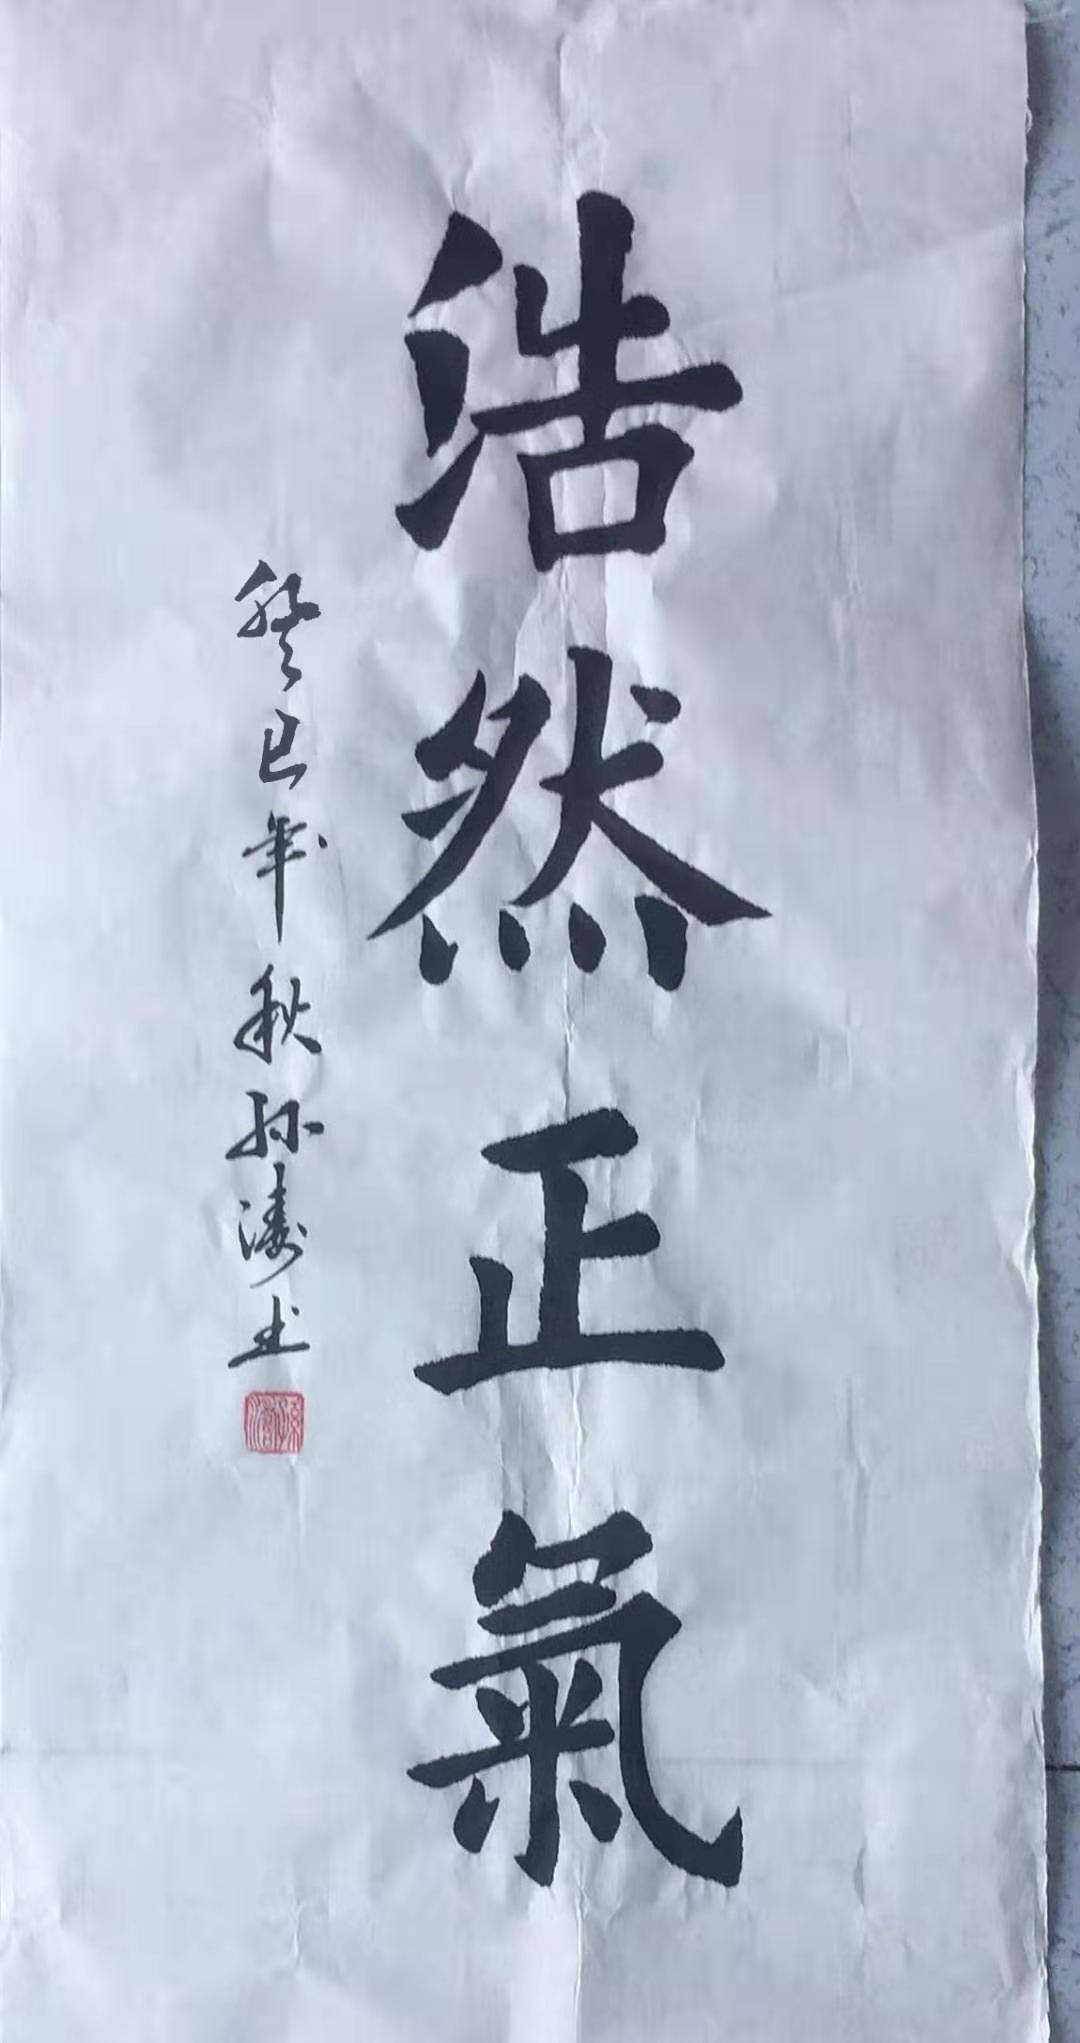 浩然正氣
癸巳年秋孙涛书
孫濤